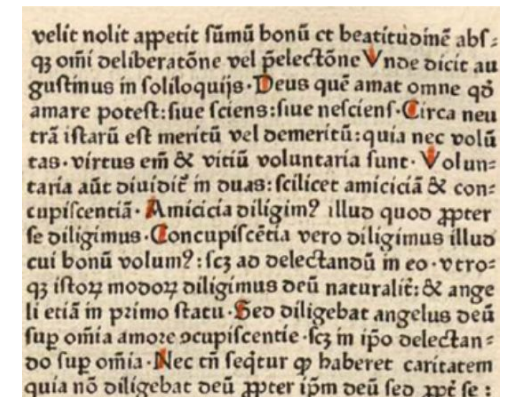 velit nolit appetit sūmū bonū et beatitudinē abſ⸗
qꝫ oı̄ni deliberatōne vel p̄electōne Vnde dicit au
guſtinus in ſoliloquijs·Deus quē amat omne qd̄
amare poteſt:ſiue ſciens:ſiue neſciens·Circa neu
trā iſtarū eſt meritū vel demeritū:quia nec volū
tas·virtus em̄ & vitiū voluntaria ſunt·Volun⸗
taria aūt diuidit̄ in duas:ſcilicet amiciciā & con⸗
cupiſcentiā·Amicicia diligimꝰ illud quod ꝓpter
ſe diligimus·Concupiſcētia vero diligimus illud
cui bonū volumꝰ:ſcꝫ ad delectandū in eo·vtro⸗
qꝫ iſtoꝝ modoꝝ diligimus deū naturalit̄:& ange
li etiā in primo ſtatu·Sed diligebat angelus deū
ſuꝑ oı̄nia amore ꝯcupiſcentie·ſcꝫ in ip̄o delectan⸗
do ſuꝑ oı̄nia·Nec tn̄ ſeq̄tur ꝙ haberet caritatem
quia nō diligebat deū ꝓpter ip̄m deū ſed ꝓpt̄ ſe: